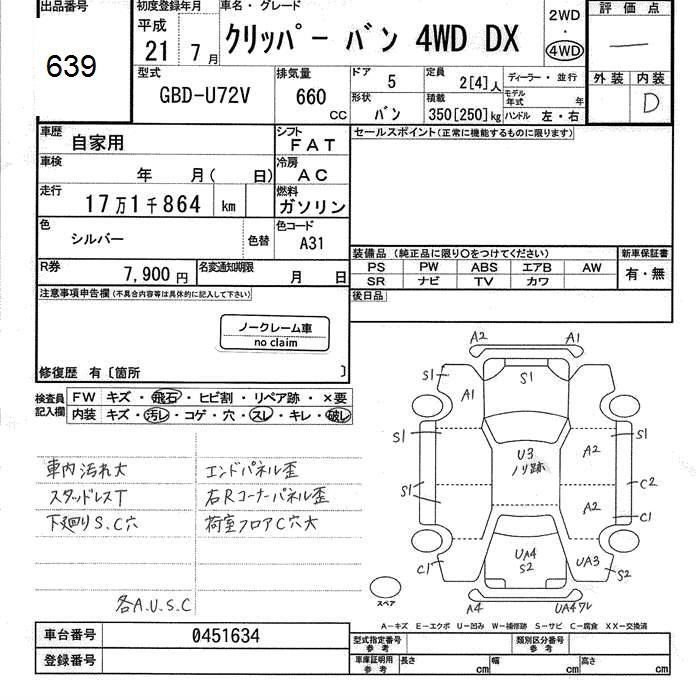 出品番号
639
初度登録年月
平成
21 7 月
車名・グレード
クリッパー バン 4WD DX
2WD
・
4WD
評価点
—
外装 内装
D
型式
GBD-U72V
排気量
660 CC
ドア
5
定員
2[4]人
ディーラー・並行
形状
バン
積載
350[250]kg
モデル年式 年
ハンドル 左・右
車歴
自家用
シフト
FAT
車検
年 月( 日)
冷房
AC
走行
17万1千864 km
燃料
ガソリン
色
シルバー
色替
色コード
A31
R券
7,900円
名変通知期限
月 日
セールスポイント(正常に機能するものに限ります)
装備品(純正品に限り○をつけてください)
新車保証書
PS PW ABS エアB AW
SR ナビ TV カワ
有・無
後日品
注意事項申告欄(不具合内容等は具体的に記入して下さい)
ノークレーム車
no claim
修復歴 有〔箇所 〕
検査員記入欄
FW キズ・飛石・ヒビ割・リペア跡・×要
内装 キズ・汚レ・コゲ・穴・スレ・キレ・破レ
車内汚れ大 エンドパネル歪
スタッドレスT 右Rコーナーパネル歪
下廻りS.C穴 荷室フロアC穴大
各A.U.S.C
A2 A1
S1 S1
A1
S1 S1
U3 A2
ノリ跡
S1 C2
A2
C1
UA4 UA3
S2
C1 S2
スペア
A4 UA4ワレ
A―キズ E―エクボ U―凹み W―補修跡 S―サビ C―腐食 XX―交換済
車台番号 0451634
登録番号
型式指定番号 参考
類別区分番号 参考
車庫証明用 参考
長さ cm 幅 cm 高さ cm